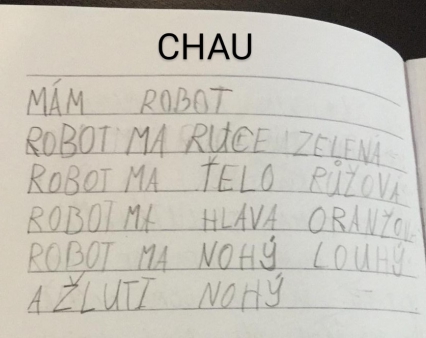 CHAU
MÁM ROBOT
ROBOT MA RUCE ZELENÁ
ROBOT MA ŤELO RŮŽOVÁ
ROBOT MA HLAVA ORANŽOV
ROBOT MA NOHÝ LOUHÝ
A ŽLUTÍ NOHÝ